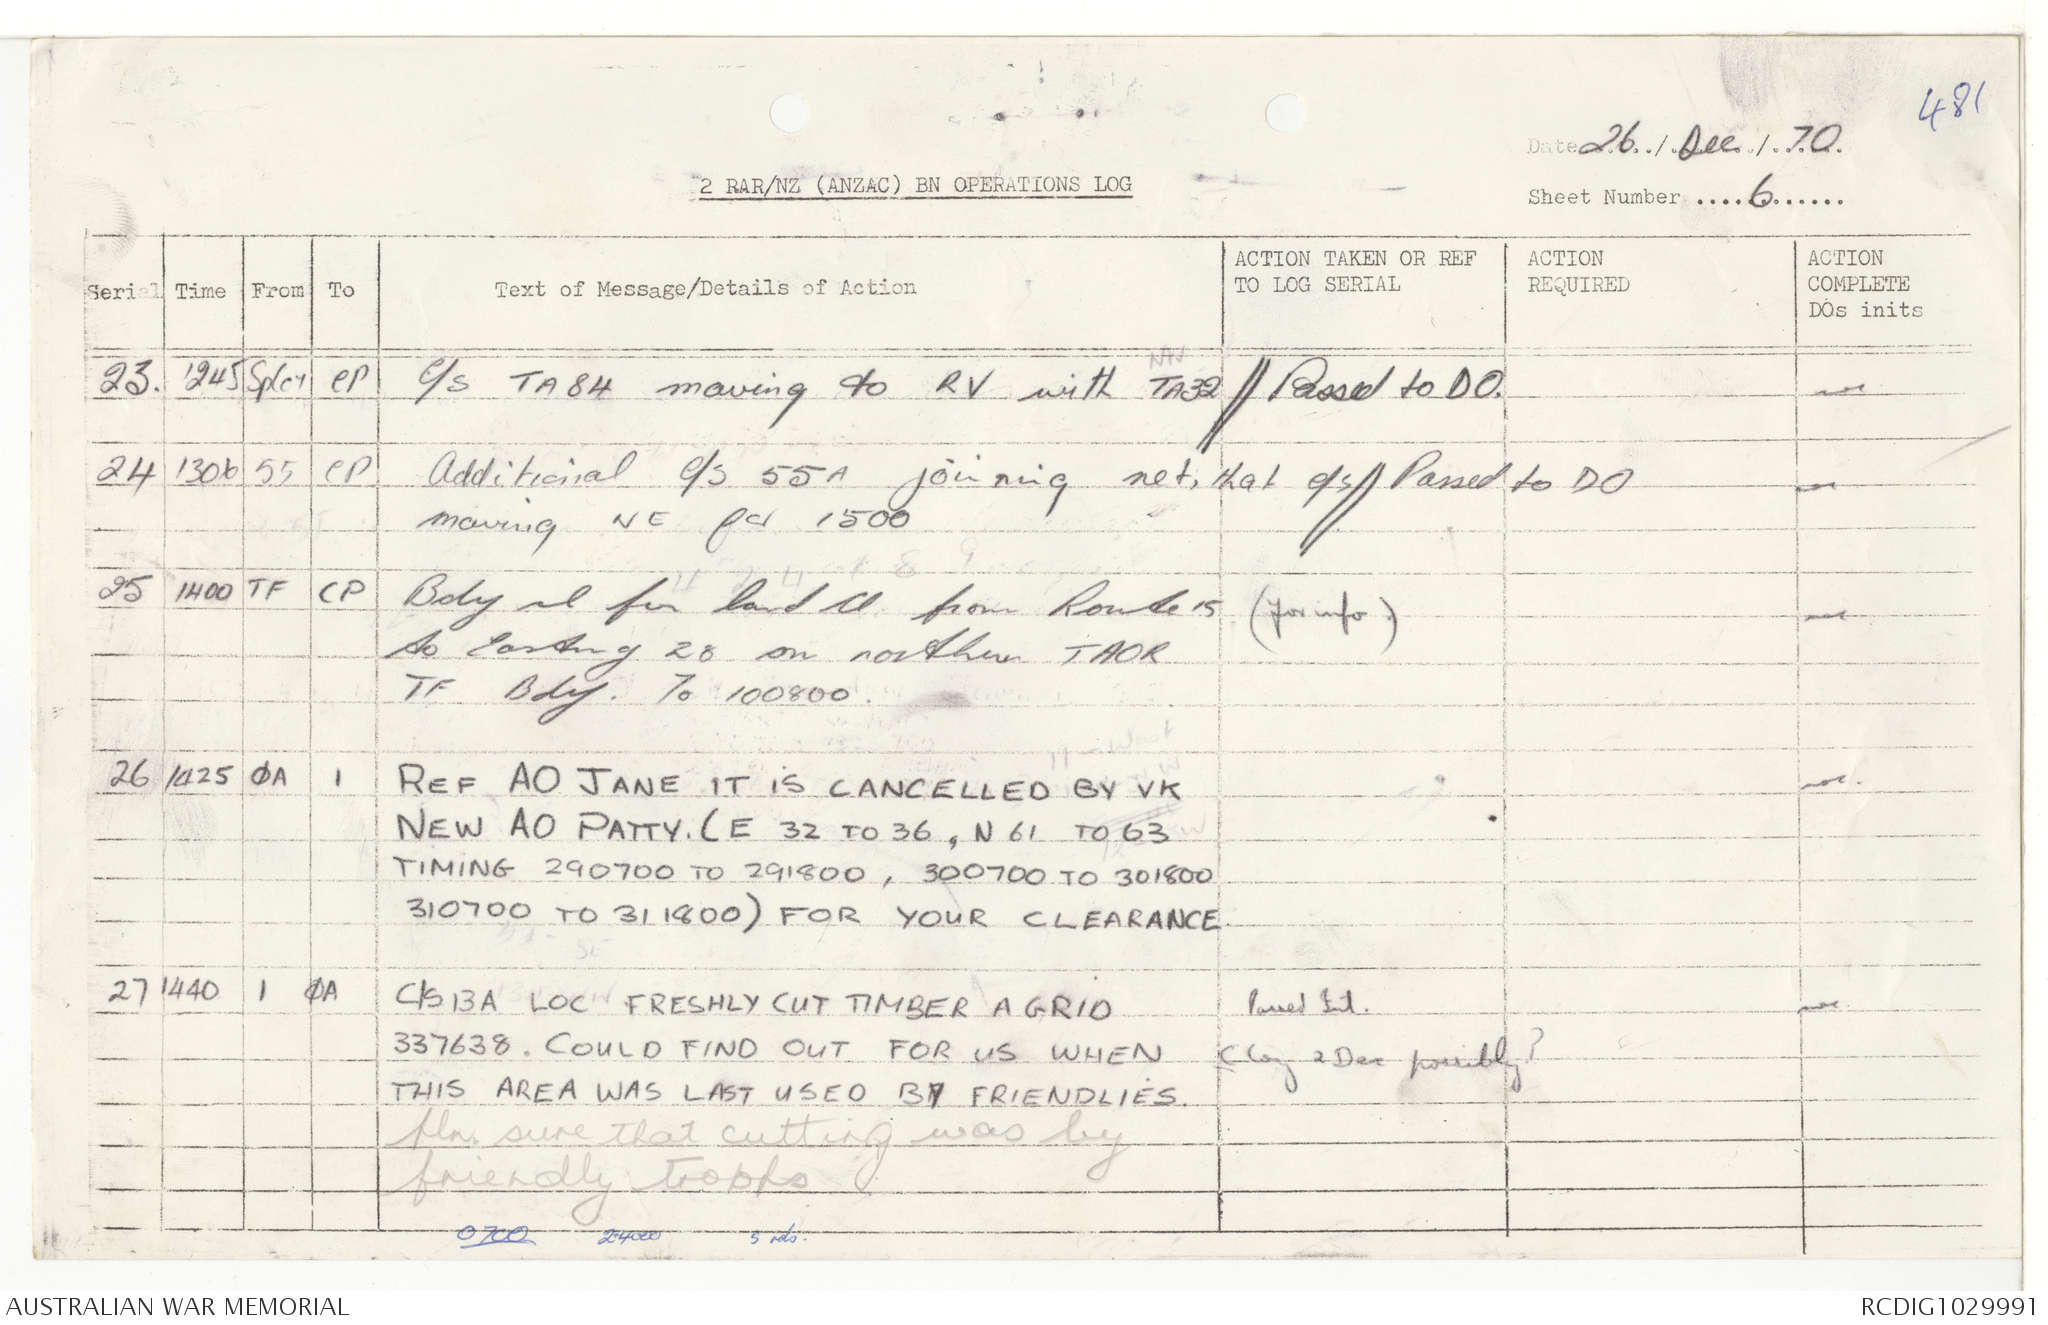 481
Date 26 / Dec / 70
2 RAR/NZ (ANZAC) BN OPERATIONS LOG
Sheet Number ....6......
Serial Time From To Text of Message/Details of Action ACTION TAKEN OR REF TO LOG SERIAL ACTION REQUIRED ACTION COMPLETE DOs inits
23. 1245 CP C/S TA84 moving to RV with TA32 // Passed to DO.
24 1306 55 CP Additional C/S 55A joining net, that C/S // Passed to DO
moving NE 1500
25 1400 TF CP Bdy for land from Route 15 (for info)
to Easting 28 on northern TAOR
TF Bdy. To 100800.
26 1425 ØA 1 REF AO JANE IT IS CANCELLED BY VK
NEW AO PATTY. (E 32 TO 36, N 61 TO 63
TIMING 290700 TO 291800, 300700 TO 301800
310700 TO 311800) FOR YOUR CLEARANCE.
27 1440 1 ØA C/S 13A LOC FRESHLY CUT TIMBER A GRID Passed Int.
337638. COULD FIND OUT FOR US WHEN C Coy 2 Dec possibly?
THIS AREA WAS LAST USED BY FRIENDLIES.
sure that cutting was by
friendly tropps
0700 24000 5 rds.
AUSTRALIAN WAR MEMORIAL RCDIG1029991